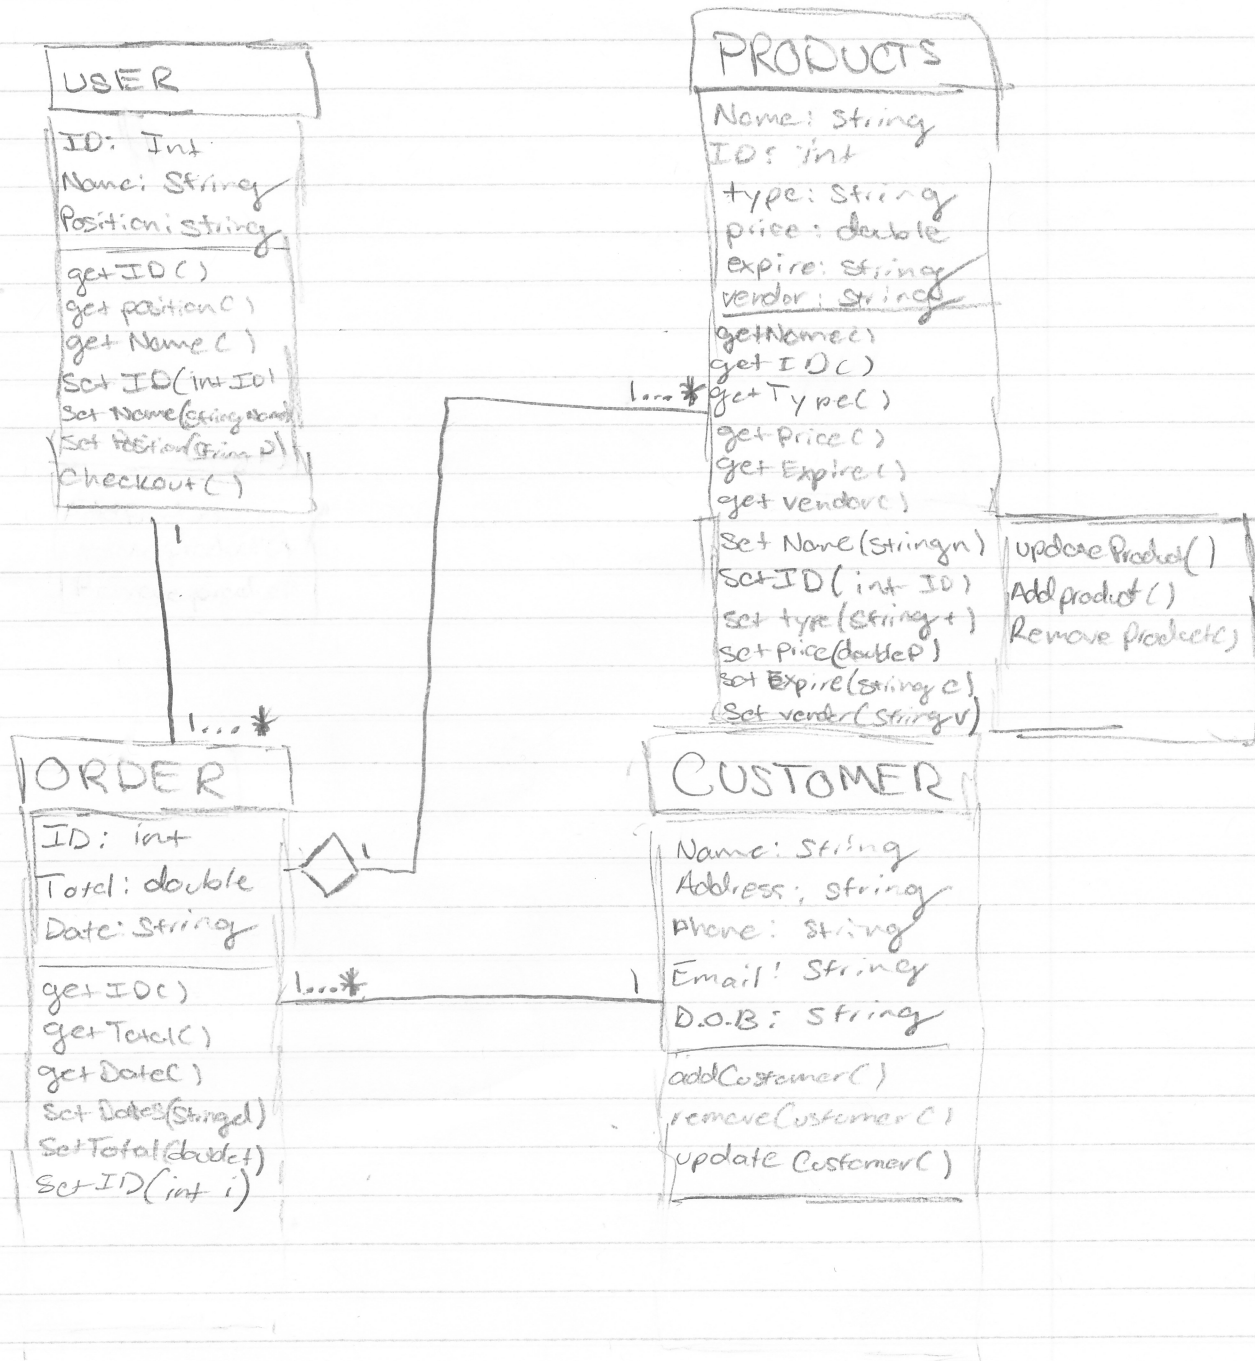 USER
ID: Int
Name: String
Position: string
getID()
get position()
get Name()
set ID(int ID)
set Name(String Name)
set Position(String P)
Checkout()
1
1...*
PRODUCTS
Name: string
ID: int
type: string
price: double
expire: string
vendor: string
getName()
getID()
getType()
getPrice()
get Expire()
get vendor()
set Name(string n)
setID(int ID)
set type(string t)
set price(double P)
set Expire(string e)
Set vender(string v)
updateProduct()
Addproduct()
Remove Product()
1...*
1
ORDER
ID: int
Total: double
Date: String
getID()
getTotal()
getDate()
set Dates(String d)
SetTotal(double t)
SetID(int i)
1...*
1
CUSTOMER
Name: String
Address: string
Phone: string
Email: String
D.O.B: String
addCustomer()
removeCustomer()
update Customer()